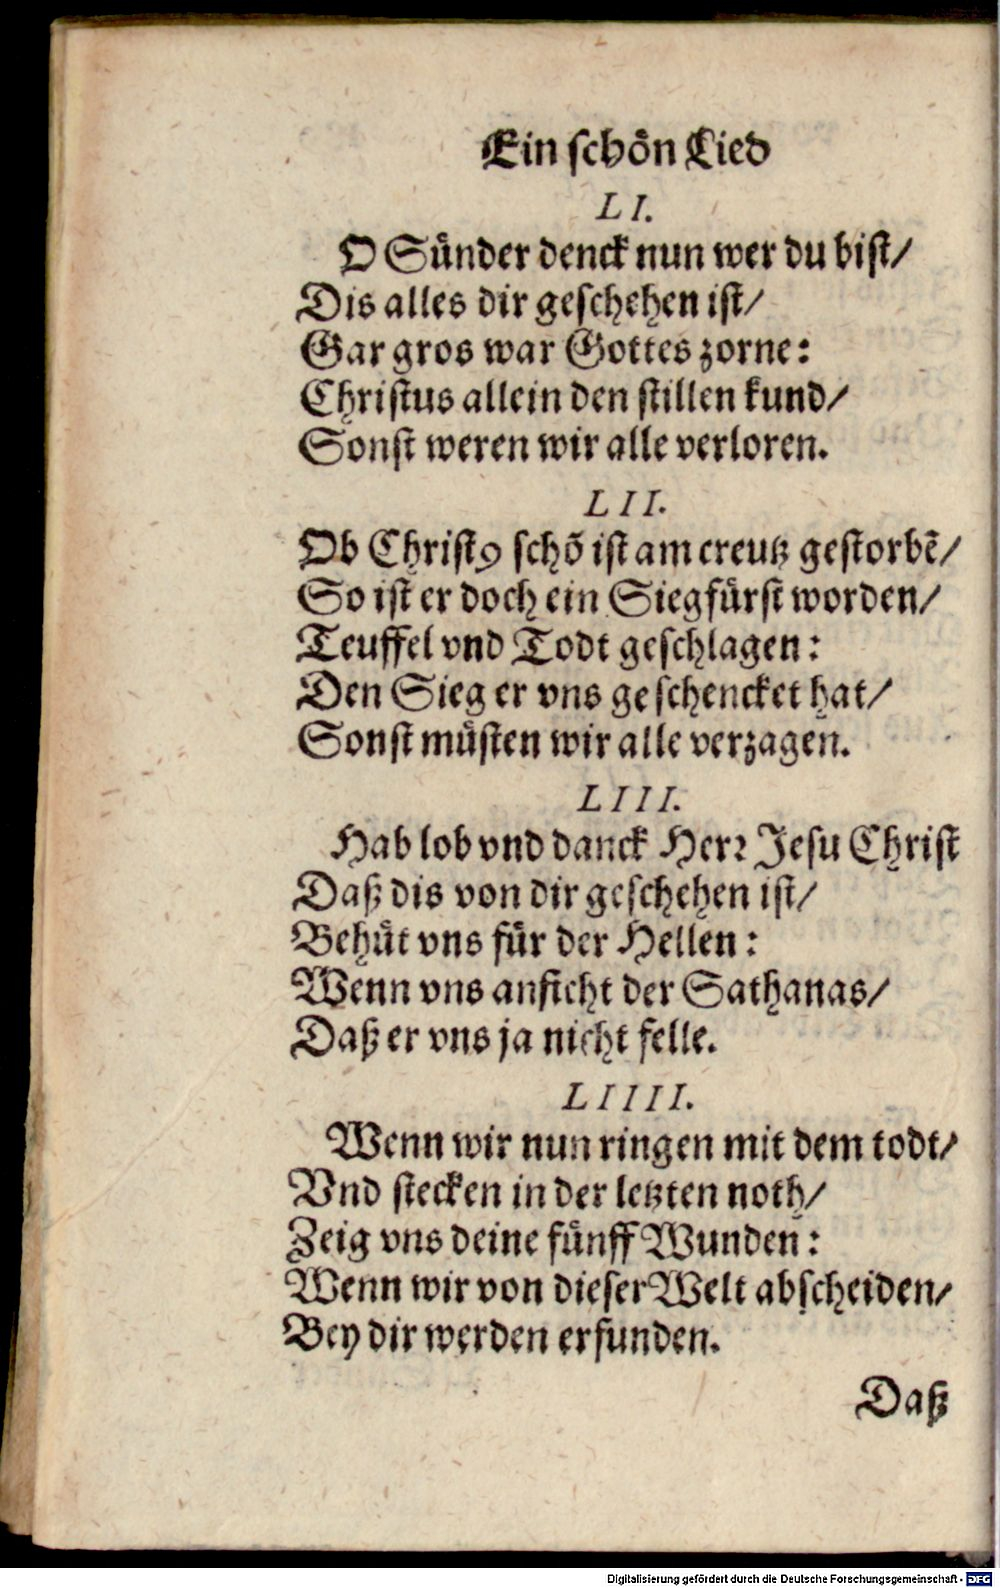 Ein schön Lied
LI.
O Sünder denck nun wer du bist/
Dis alles dir geschehen ist/
Gar gros war Gottes zorne:
Christus allein den stillen kund/
Sonst weren wir alle verloren.
LII.
Ob Christꝰ schō ist am creutz gestorbē/
So ist er doch ein Siegfürst worden/
Teuffel vnd Todt geschlagen:
Den Sieg er vns geschencket hat/
Sonst müsten wir alle verzagen.
LIII.
Hab lob vnd danck Herr Jesu Christ
Daß dis von dir geschehen ist/
Behüt vns für der Hellen:
Wenn vns anficht der Sathanas/
Daß er vns ja nicht felle.
LIIII.
Wenn wir nun ringen mit dem todt/
Vnd stecken in der letzten noth/
Zeig vns deine fünff Wunden:
Wenn wir von dieser Welt abscheiden/
Bey dir werden erfunden.
Daß
Digitalisierung gefördert durch die Deutsche Forschungsgemeinschaft - DFG